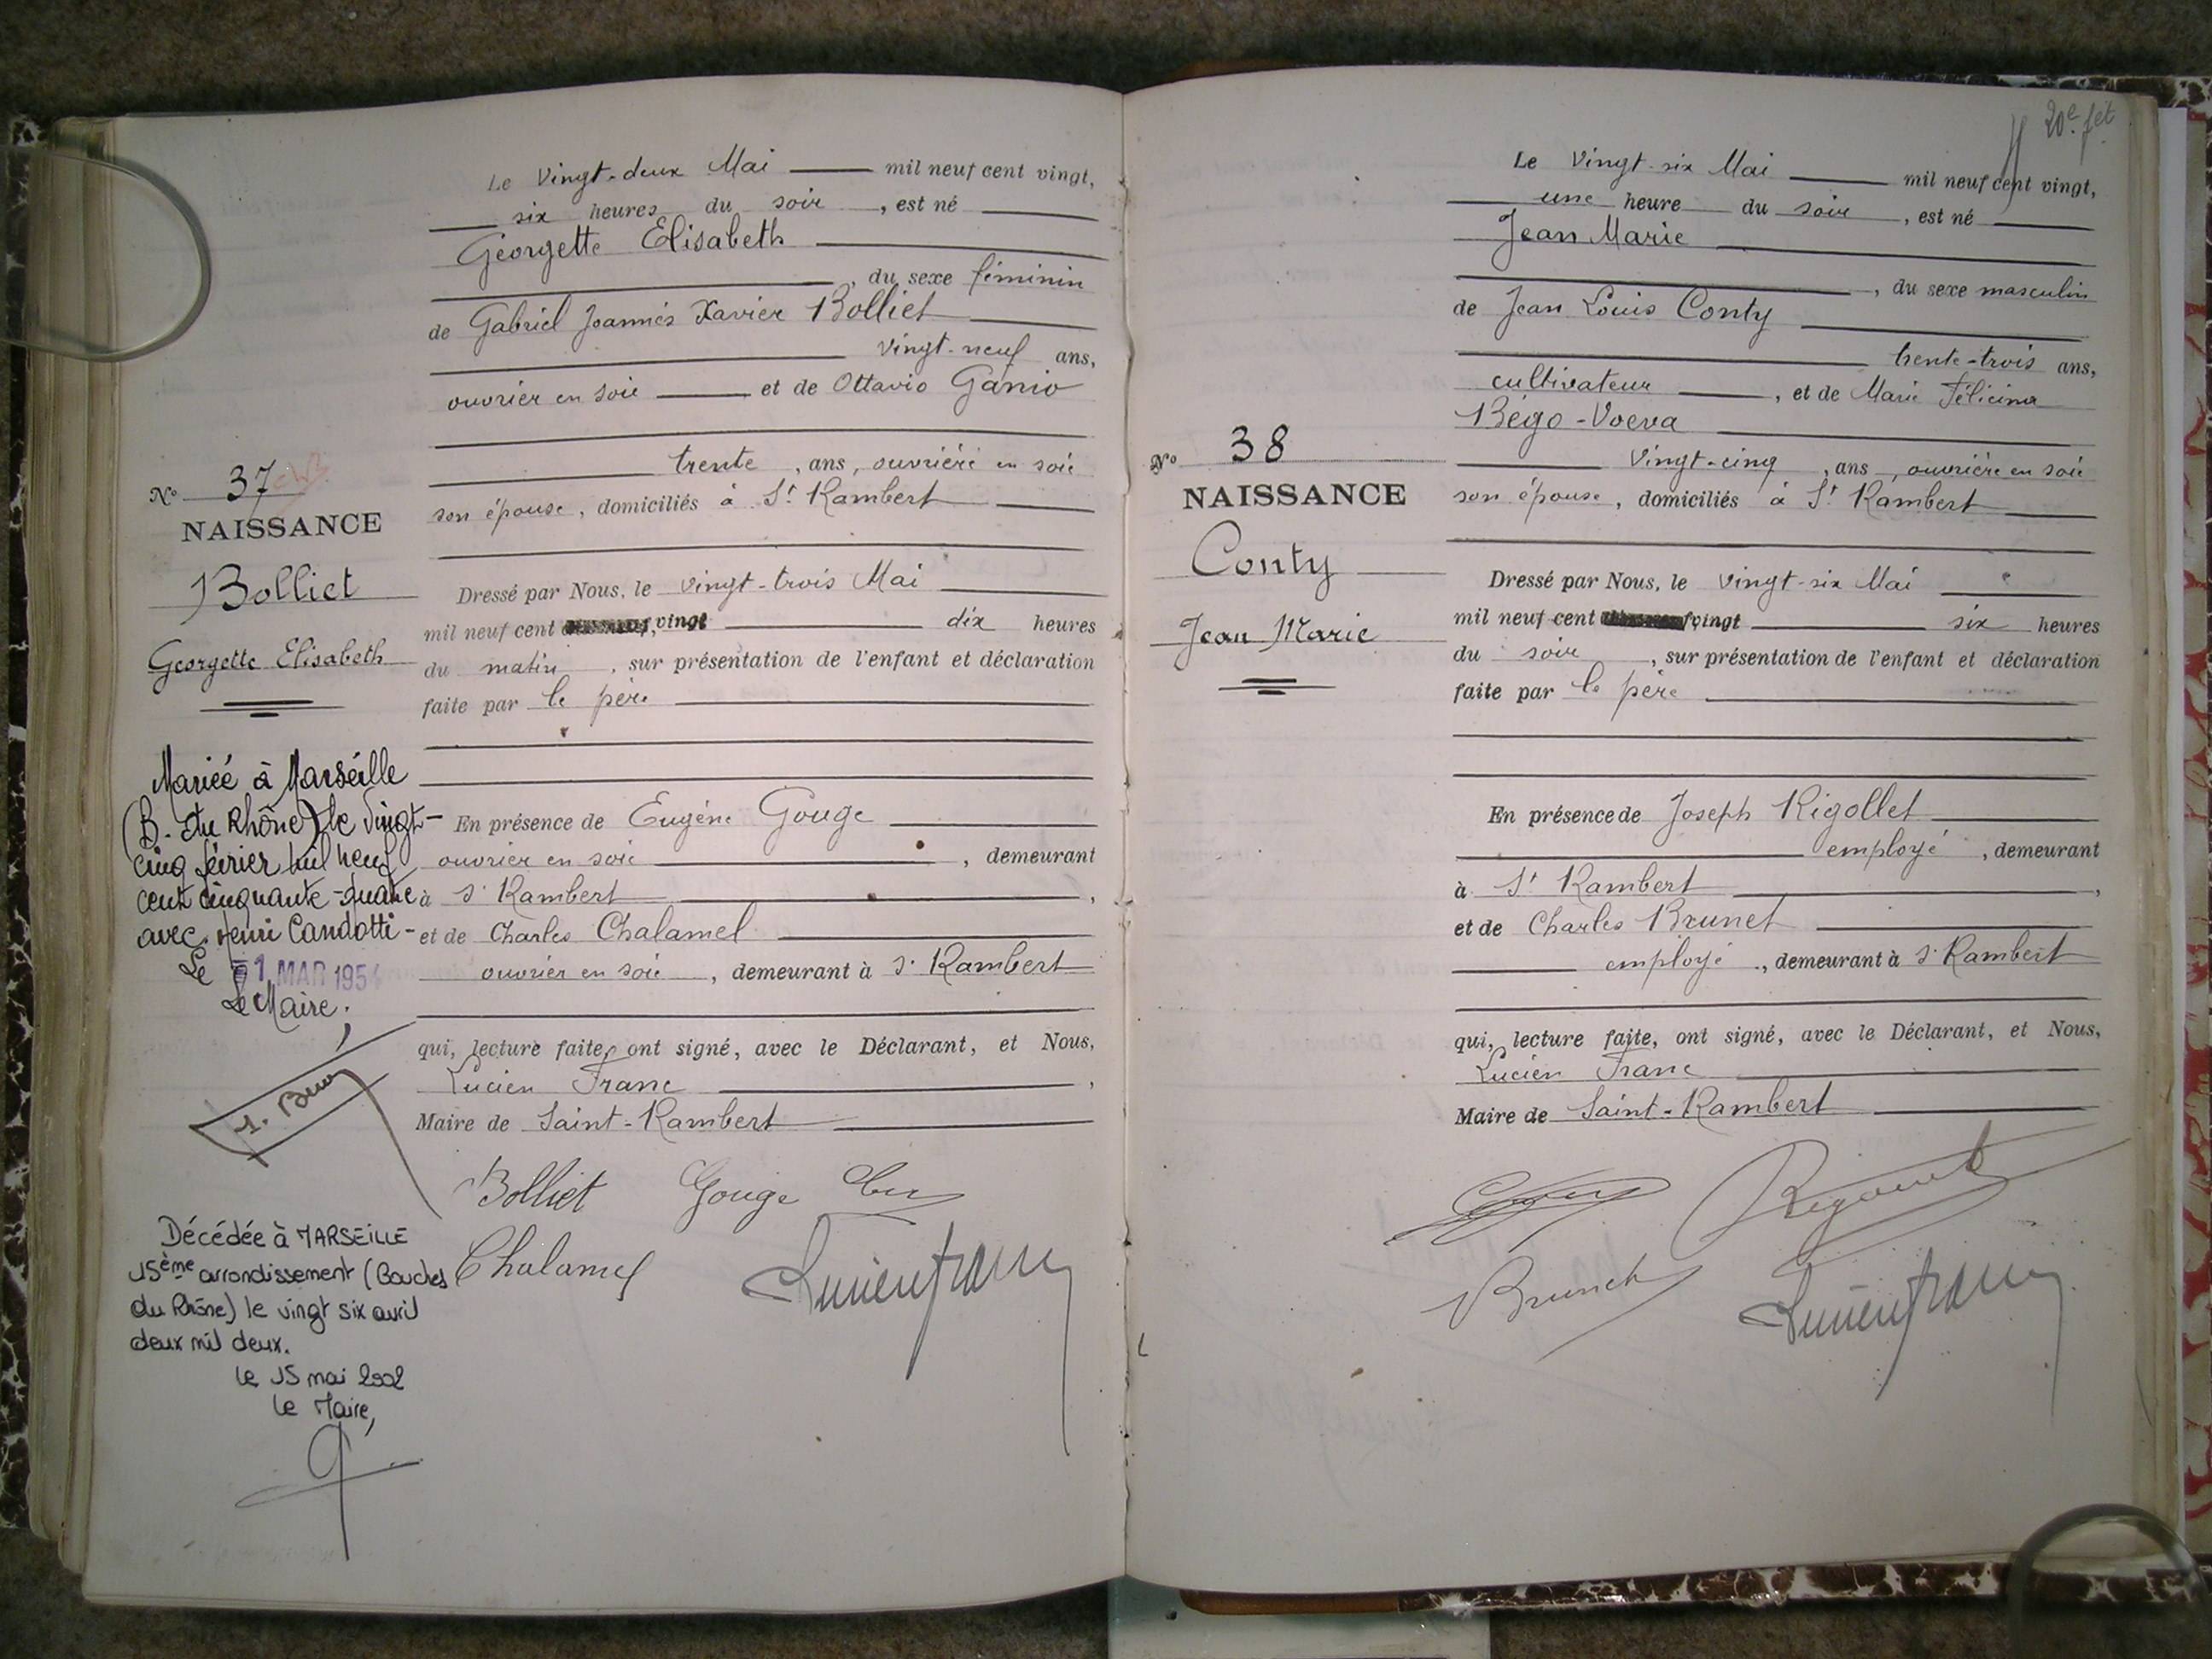 Le Vingt-deux Mai mil neuf cent vingt,
six heures du soir, est né
Georgette Elisabeth
, du sexe féminin
de Gabriel Joannès Xavier Bolliet
vingt-neuf ans,
ouvrier en soie et de Ottavio Ganio
trente, ans, ouvrière en soie
son épouse, domiciliés à St Rambert
N° 37
NAISSANCE
Bolliet
Georgette Elisabeth
Dressé par Nous, le vingt-trois Mai
mil neuf cent vingt dix heures
du matin, sur présentation de l'enfant et déclaration
faite par le père
En présence de Eugène Gouge
ouvrier en soie, demeurant
à St Rambert,
et de Charles Chalamel
ouvrier en soie, demeurant à St Rambert
qui, lecture faite, ont signé, avec le Déclarant, et Nous,
Lucien Franc,
Maire de Saint-Rambert
Bolliet Gouge
Chalamel Lucien franc
Mariée à Marseille
(B. du Rhône) le vingt-
cinq février mil neuf
cent cinquante-quatre
avec Henri Candotti-
Le 1 MAR 1954
Le Maire,
Décédée à MARSEILLE
15ème arrondissement (Bouches
du Rhône) le vingt six avril
deux mil deux.
le 15 mai 2002
Le Maire,
20e fet
Le Vingt-six Mai mil neuf cent vingt,
une heure du soir, est né
Jean Marie
, du sexe masculin
de Jean Louis Conty
trente-trois ans,
cultivateur, et de Marie Félicina
Bégo-Voeva
Vingt-cinq, ans, ouvrière en soie
son épouse, domiciliés à St Rambert
N° 38
NAISSANCE
Conty
Jean Marie
Dressé par Nous, le vingt-six Mai
mil neuf cent vingt six heures
du soir, sur présentation de l'enfant et déclaration
faite par le père
En présence de Joseph Rigollet
employé, demeurant
à St Rambert,
et de Charles Brunet
employé, demeurant à St Rambert
qui, lecture faite, ont signé, avec le Déclarant, et Nous,
Lucien Franc
Maire de Saint-Rambert
Brunet Lucien franc